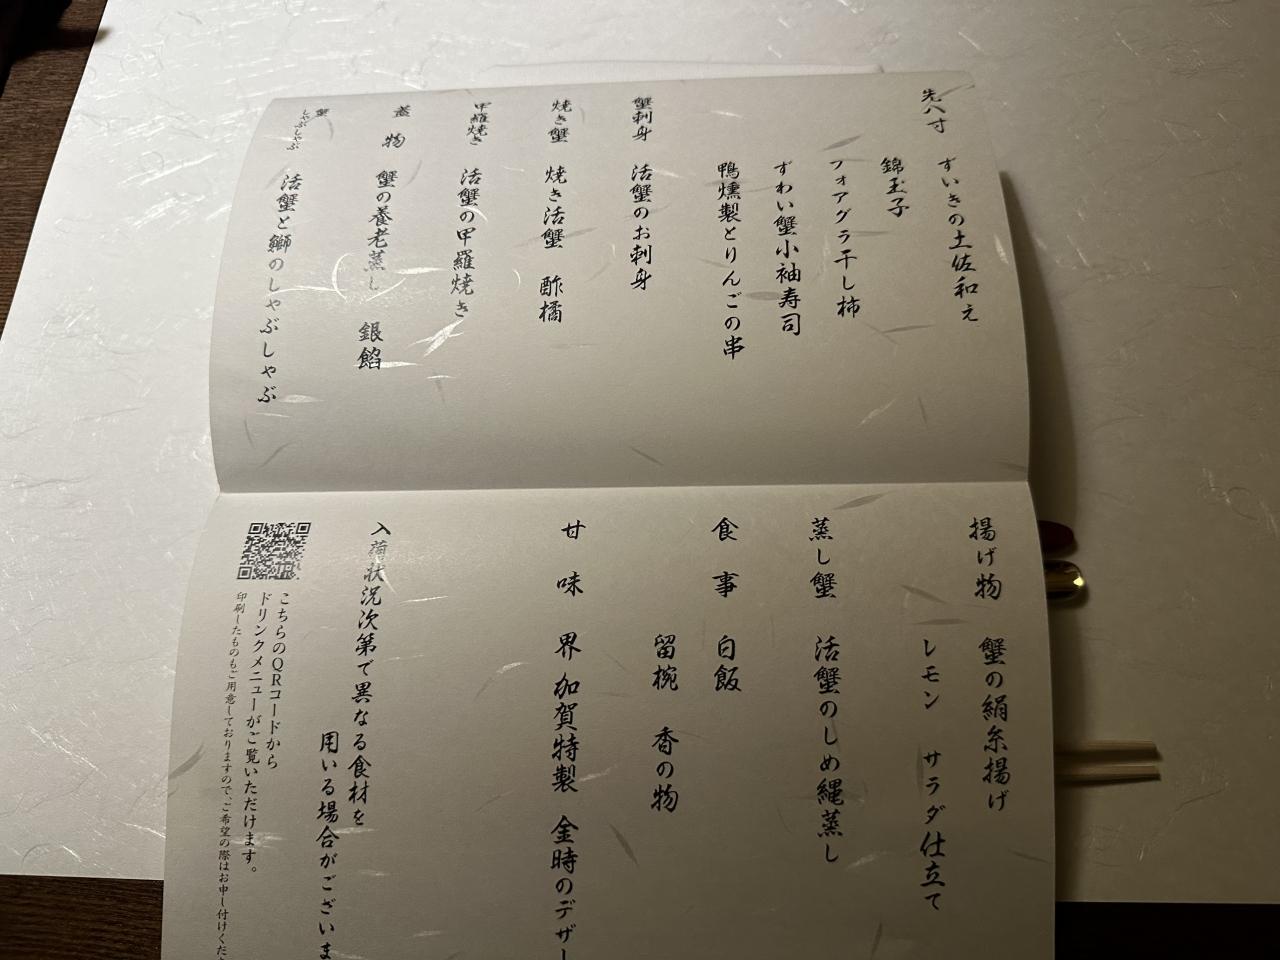 先八寸
ずいきの土佐和え
錦玉子
フォアグラ干し柿
ずわい蟹小袖寿司
鴨燻製とりんごの串
蟹刺身 活蟹のお刺身
焼き蟹 焼き活蟹 酢橘
甲羅焼き 活蟹の甲羅焼き
蓋物 蟹の養老蒸し 銀餡
蟹しゃぶしゃぶ 活蟹と鰤のしゃぶしゃぶ
揚げ物 蟹の絹糸揚げ
レモン サラダ仕立て
蒸し蟹 活蟹のしめ縄蒸し
食事 白飯
留椀 香の物
甘味 界 加賀特製 金時のデザー
入荷状況次第で異なる食材を
用いる場合がございま
こちらのQRコードから
ドリンクメニューがご覧いただけます。
印刷したものもご用意しておりますので、ご希望の際はお申し付けくだ